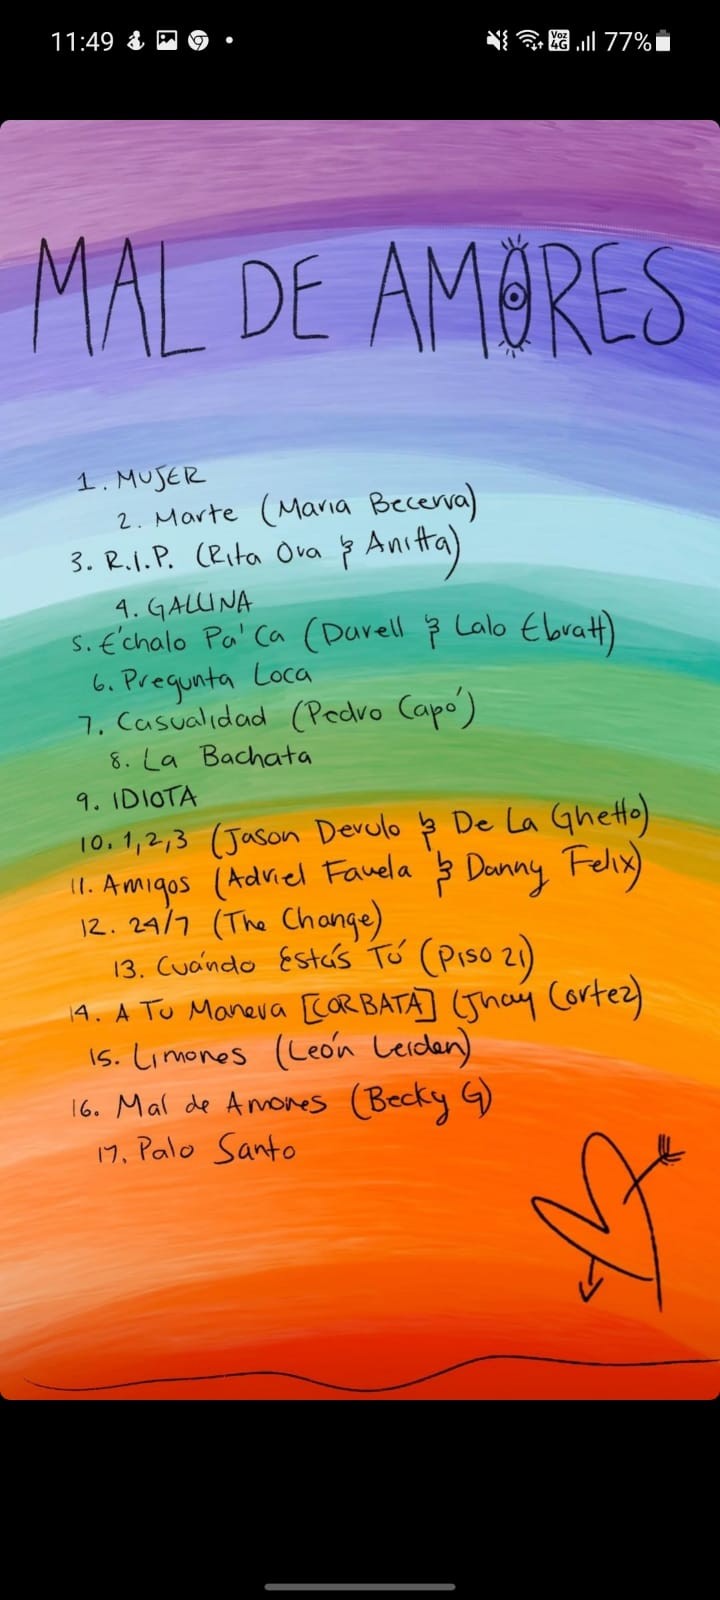 11:49
Voz
4G
77%
MAL DE AMORES
1. MUJER
2. Marte (Maria Becerra)
3. R.I.P. (Rita Ora & Anitta)
4. GALLINA
5. Échalo Pa' Ca (Darell & Lalo Ebratt)
6. Pregunta Loca
7. Casualidad (Pedro Capó)
8. La Bachata
9. IDIOTA
10. 1,2,3 (Jason Derulo & De La Ghetto)
11. Amigos (Adriel Favela & Danny Felix)
12. 24/7 (The Change)
13. Cuándo Estás Tú (Piso 21)
14. A Tu Manera [CORBATA] (Jhay Cortez)
15. Limones (León Leiden)
16. Mal de Amores (Becky G)
17. Palo Santo